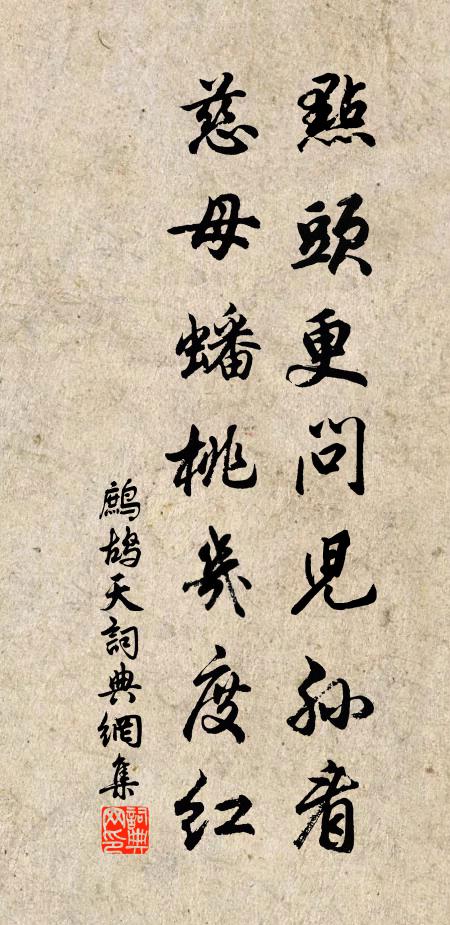 點頭更問兒孫看
慈母蟠桃幾度紅
鷓鴣天詞典網集
詞典網印